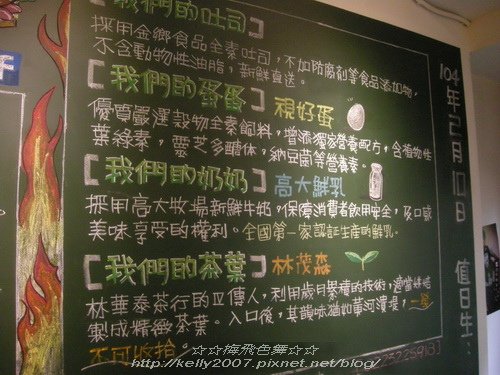 [我們的吐司]
採用金鄉食品全素吐司,不加防腐劑等食品添加物,
不含動物性油脂,新鮮直送。
[我們的蛋蛋] 視好蛋
優質嚴選穀物全素飼料,增添獨家營養配方,含植物性
葉綠素,靈芝多醣体,納豆菌等營養素。
[我們的奶奶] 高大鮮乳
採用高大牧場新鮮牛奶,保障消費者飲用安全,及口感
美味享受的權利。全國第一家認証生產的鮮乳。
[我們的茶葉] 林茂森
林華泰茶行的四傳人,利用歲月累積的技術,適當烘焙
製成精緻茶葉。入口後,其韻味猶如黃河潰堤,一發
不可收拾。
104年2月10日
值日生:
☆☆梅飛色舞☆☆
http://kelly2007.pixnet.net/blog/